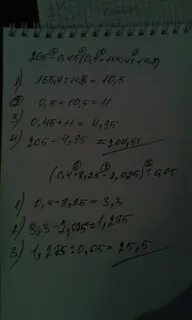 205-0,45(0,5+155,4:14,8)
1) 155,4:14,8=10,5
2) 0,5+10,5=11
3) 0,45·11=4,95
4) 205-4,95=
(0,4·8,25-2,025):0,05
1) 0,4·8,25=3,3
2) 3,3-2,025=1,275
3) 1,275:0,05=25,5